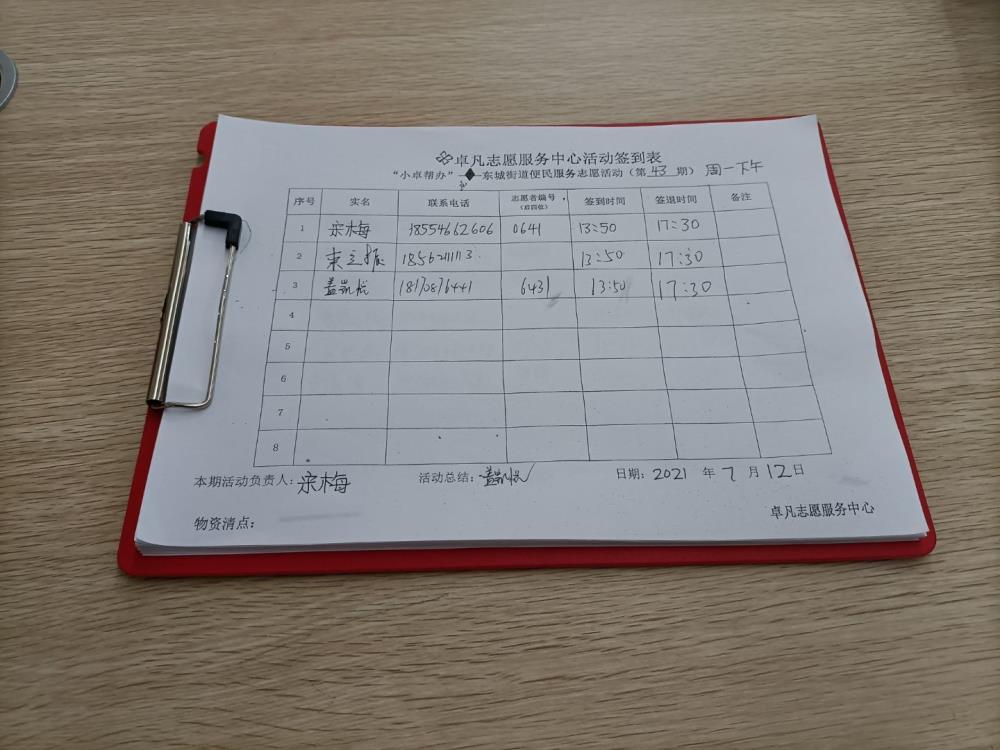 卓凡志愿服务中心活动签到表
“小卓帮办”——东城街道便民服务志愿活动（第 43 期） 周一下午
序号 实名 联系电话 志愿者编号（后四位） 签到时间 签退时间 备注
1 宗梅 18554662606 0641 13:50 17:30
2 18562111113 13:50 17:30
3 盖凯悦 6431 13:50 17:30
4
5
6
7
8
本期活动负责人：宗梅 活动总结：盖凯悦 日期：2021 年 7 月 12 日
物资清点： 卓凡志愿服务中心